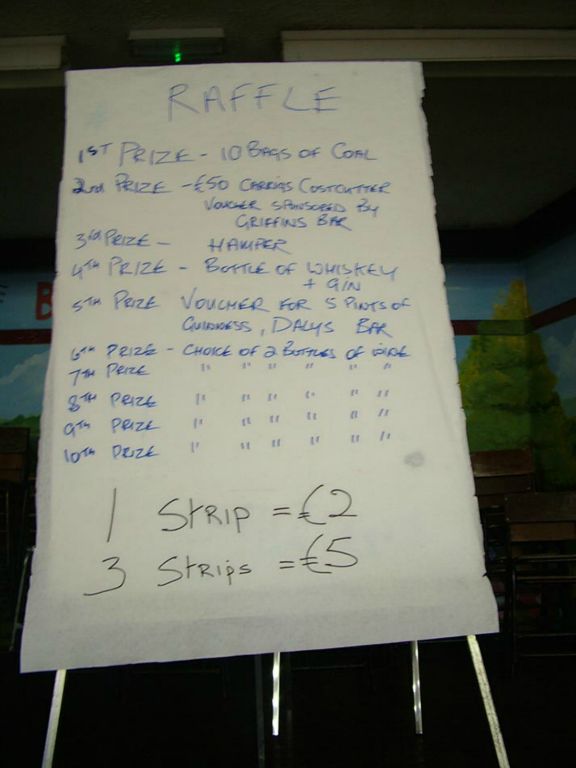 RAFFLE
1ST PRIZE - 10 BAGS OF COAL
2nd PRIZE - €50 CARRIGS COSTCUTTER
VOUCHER SPONSORED BY
GRIFFINS BAR
3rd PRIZE - HAMPER
4TH PRIZE - BOTTLE OF WHISKEY
+ GIN
5TH PRIZE VOUCHER FOR 5 PINTS OF
GUINNESS, DALYS BAR
6TH PRIZE - CHOICE OF 2 BOTTLES OF WINE
7TH PRIZE " " " " " "
8TH PRIZE " " " " " "
9TH PRIZE " " " " " "
10TH PRIZE " " " " " "
1 STRIP = €2
3 STRIPS = €5